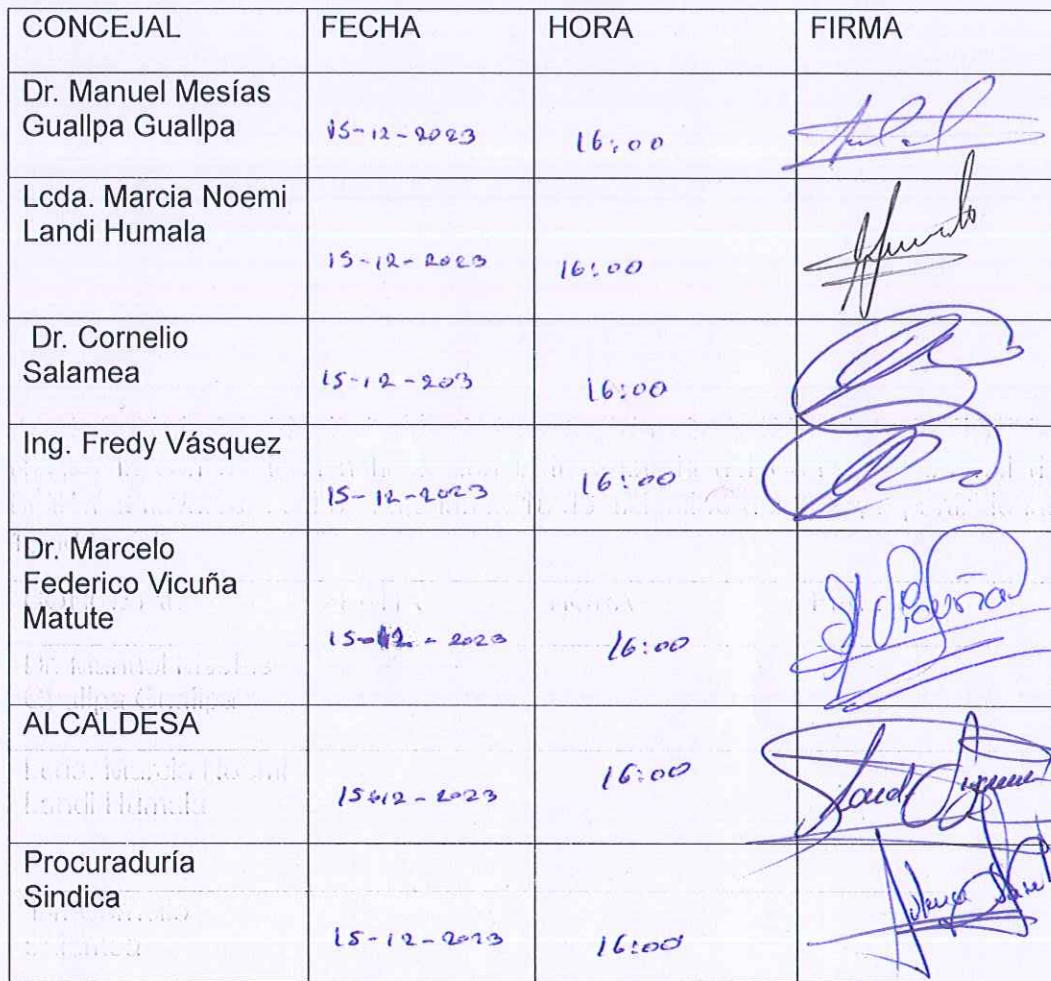 CONCEJAL FECHA HORA FIRMA
Dr. Manuel Mesías
Guallpa Guallpa 15-12-2023 16:00
Lcda. Marcia Noemi
Landi Humala
15-12-2023 16:00
Dr. Cornelio
Salamea 15-12-203 16:00
Ing. Fredy Vásquez
15-12-2023 16:00
Dr. Marcelo
Federico Vicuña
Matute
15-12-2023 16:00
ALCALDESA
15-12-2023 16:00
Procuraduría
Sindica
15-12-2023 16:00